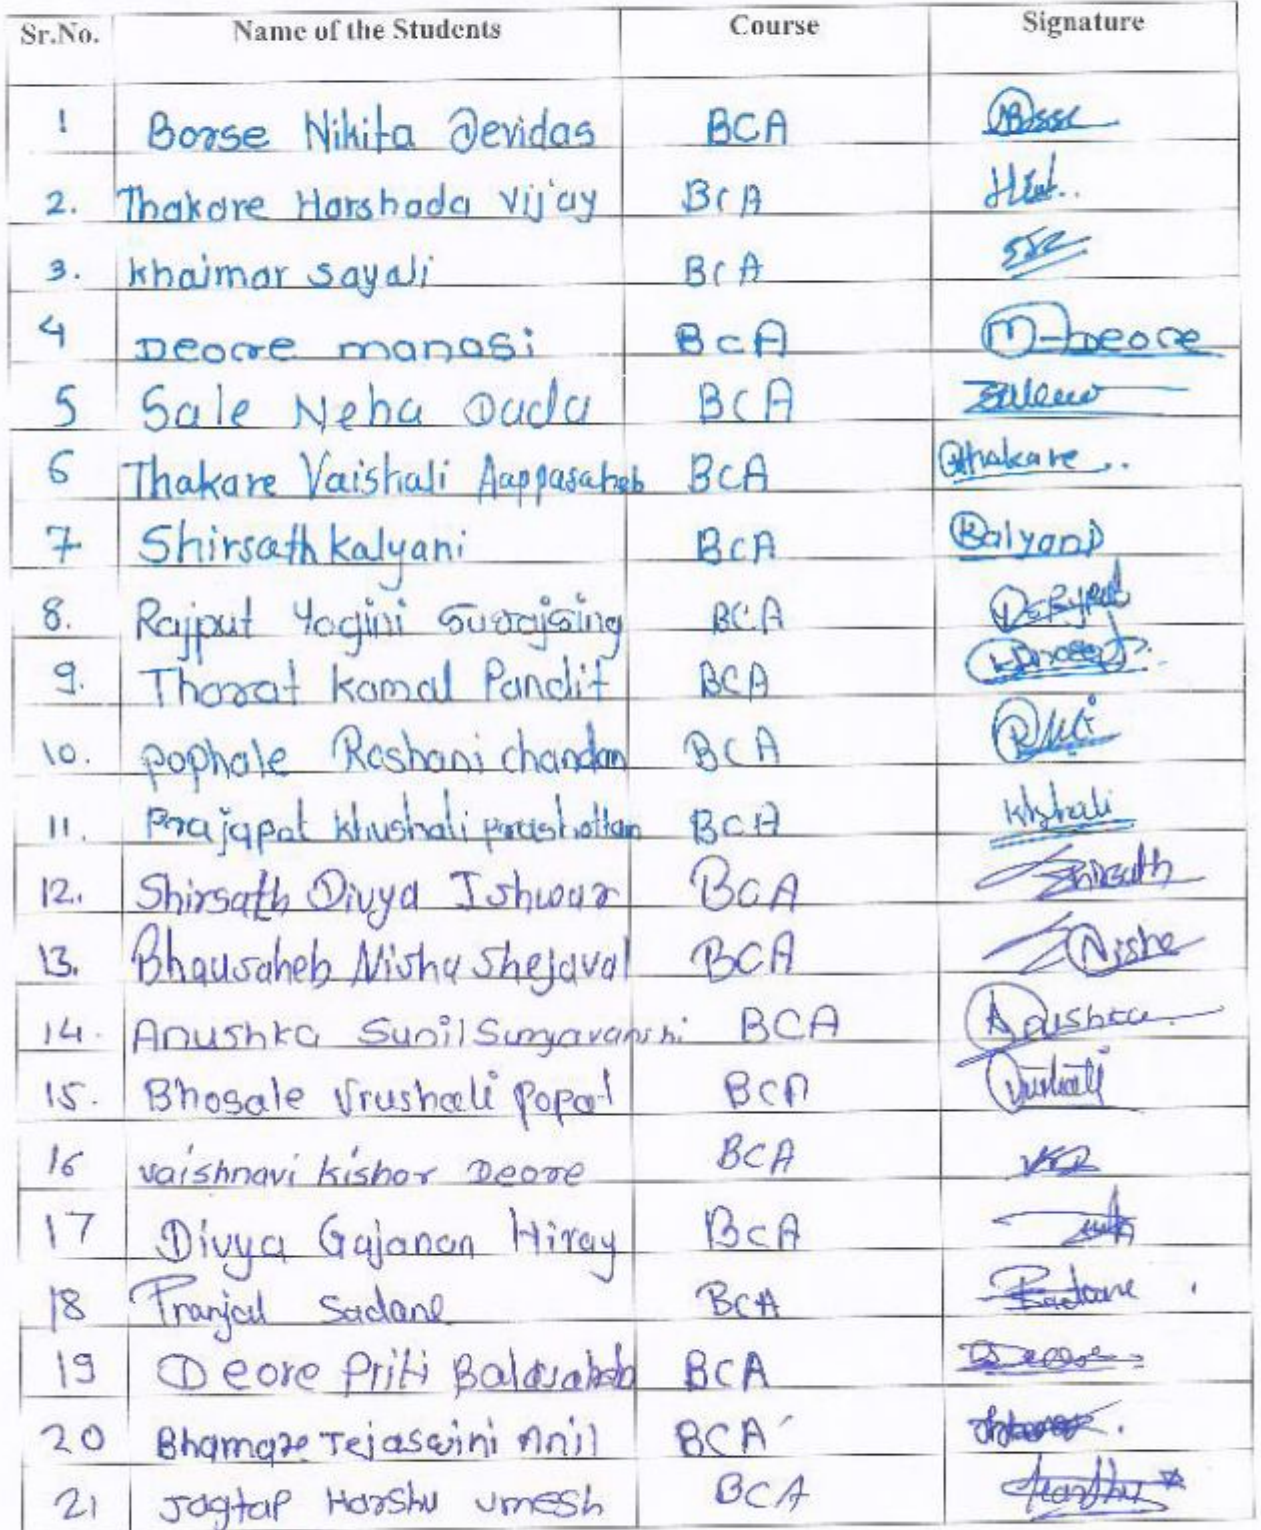 Sr.No. Name of the Students Course Signature
1 Borse Nikita Devidas BCA
2. Thakare Harshada Vijay BCA
3. Khaimar Sayali BCA
4 Deore manasi BCA M-Deore
5 Sale Neha Dada BCA
6 Thakare Vaishali Aappasaheb BCA Thakare..
7 Shirsath Kalyani BCA Kalyani
8. Rajput Yogini Surajsing BCA
9. Thorat Komal Pandit BCA
10. Pophale Roshani chandan BCA
11. Prajapat Khushali purushottam BCA Khshali
12. Shirsath Divya Ishwar BCA Shirsath
13. Bhausaheb Nisha Shejaval BCA Nisha
14. Anushka Sunil Suryavanshi BCA Anushka
15. Bhosale Vrushali Popat BCA Vrushali
16 Vaishnavi Kishor Deore BCA VKD
17 Divya Gajanan Hiray BCA
18 Pranjal Sadane BCA Sadane
19 Deore Priti Balasaheb BCA Deore
20 Bhamare Tejaswini Anil BCA
21 Jagtap Harshu Umesh BCA